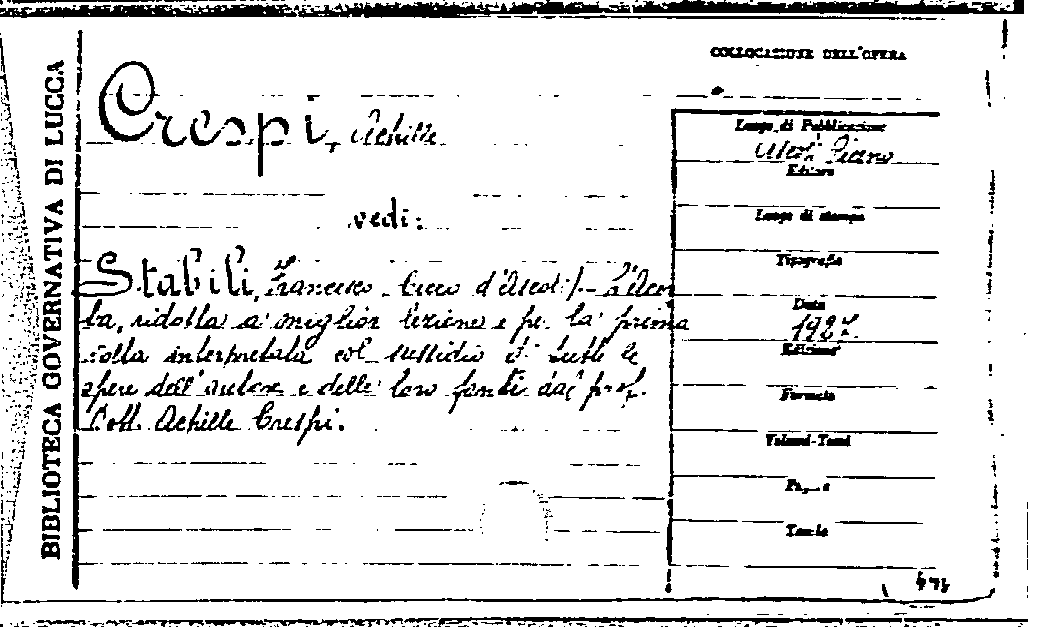 BIBLIOTECA GOVERNATIVA DI LUCCA
COLLOCAZIONE DELL'OPERA
Crespi, Achille
vedi:
Stabili, Francesco Cecco d'Ascoli - L'Acer
ba, ridotta a miglior lezione e per la prima
volta interpretata col sussidio di tutte le
opere dell'autore e delle loro fonti dal prof.
Dott. Achille Crespi.
Luogo di Pubblicazione
Ascoli Piceno
Editore
Luogo di stampa
Tipografia
Data
1927
Edizione
Formato
Volumi-Tomi
Pagine
Tavole